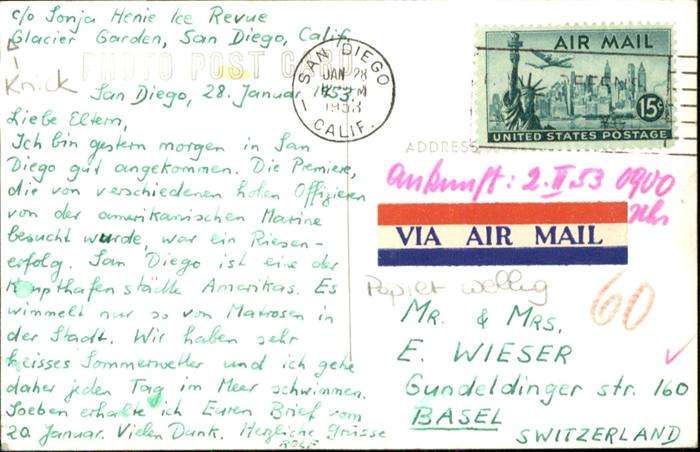 c/o Sonja Henie Ice Revue
Glacier Garden, San Diego, Calif.
Knick
PHOTO POST CARD
San Diego, 28. Januar 1953.
Liebe Eltern,
Ich bin gestern morgen in San
Diego gut angekommen. Die Premiere,
die von verschiedenen hohen Offizieren
von der amerikanischen Marine
besucht wurde, war ein Riesen-
erfolg. San Diego ist eine der
Haupthafenstädte Amerikas. Es
wimmelt nur so von Matrosen in
der Stadt. Wir haben sehr
heisses Sommerwetter und ich gehe
daher jeden Tag im Meer schwimmen.
Soeben erhalte ich Euren Brief vom
20. Januar. Vielen Dank. Herzliche Grüsse
ROLF
SAN DIEGO
JAN 28
PM
1953
CALIF.
AIR MAIL
15¢
UNITED STATES POSTAGE
ADDRESS
Ankunft: 2. II. 53 0900
Uhr
VIA AIR MAIL
Papier wellig
60
MR. & MRS.
E. WIESER
Gundeldinger str. 160
BASEL
SWITZERLAND